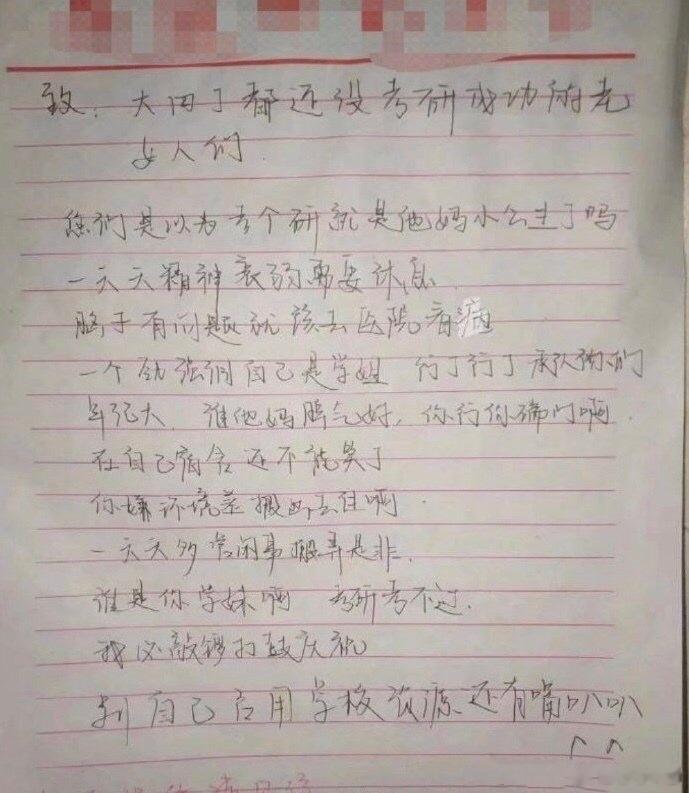 致：大四了都还没考研成功的老
女人们
您们是以为考个研就是他妈小公主了吗
一天天精神衰弱需要休息
脑子有问题就该去医院看病
一个劲强调自己是学姐 行了行了承认你们
年纪大，谁他妈脾气好，你行你踹门啊
在自己宿舍还不能笑了
你嫌环境差搬出去住啊
一天天多管闲事搬弄是非
谁是你学妹啊 考研考不过
我必敲锣打鼓庆祝
别自己占用学校资源还有嘴叭叭
^ ^